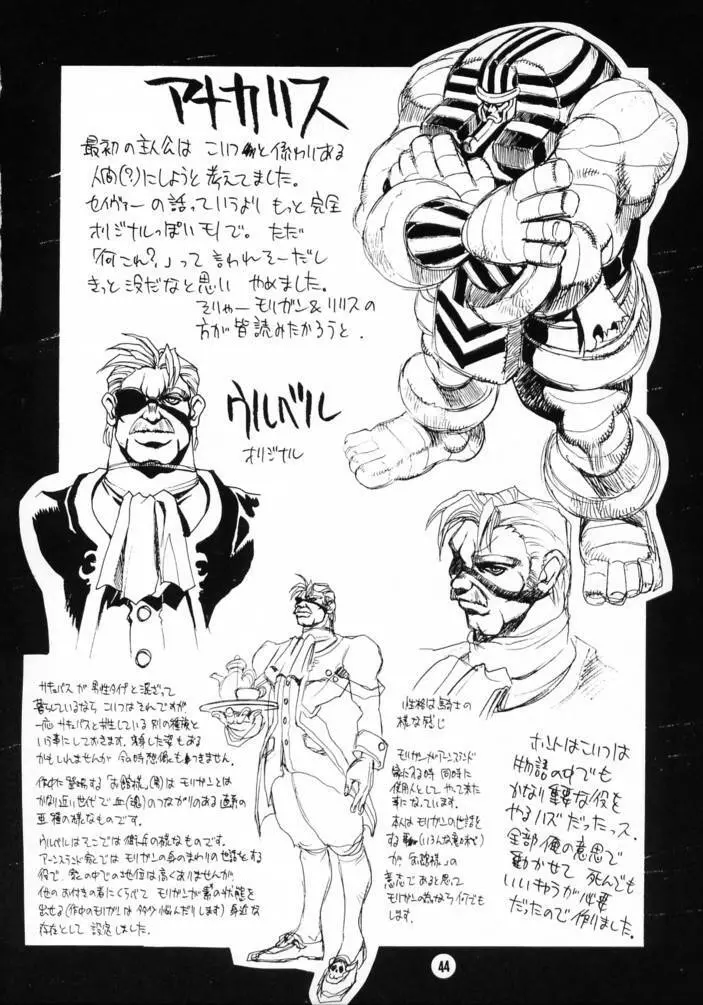 アナカリス
最初の主人公は こいつと係わりある
人間(?)にしようと考えてました。
セイヴァーの話っていうより もっと完全
オリジナルっぽいモノで。ただ
「何これ?」って言われそーだし
きっと没だなと思い やめました。
そりゃー モリガン&リリスの
方が皆読みたかろうと.
ウルベル
オリジナル
サキュバスが男性タイプと混ざって
暮らしているなら こいつはそれですが、
一応サキュバスと共生している別の種族と
いう事にしておきます。変身した姿もある
かもしれませんが 今の時想像もつきません。
作中に登場する「お館様」(男)は モリガンとは
かなり近い世代で血(魂)のつながりのある直系の
亜種の様なものです。
ウルベルはそこでは傭兵の様なものです。
アーンスランド家では モリガンの身のまわりの世話をする
役で、家の中での地位は高くありませんが、
他のお付きの者にくらべて モリガンが素の状態を
出せる(作中のモリガンは多少悩んだりします)身近な
存在として 設定しました。
性格は騎士の
様な感じ
モリガンがアーンスランド
家に入る時 同時に
使用人として やって来た
事になっています。
本人はモリガンの世話を
する事(いろんな意味で)
が「お館様」の
意志であると思って
モリガンの為なら何でも
します。
ホントはこいつは
物語の中でも
かなり重要な役を
やるハズだったっス.
全部俺の意思で
動かせて 死んでも
いいキャラが必要
だったので作りました.
44